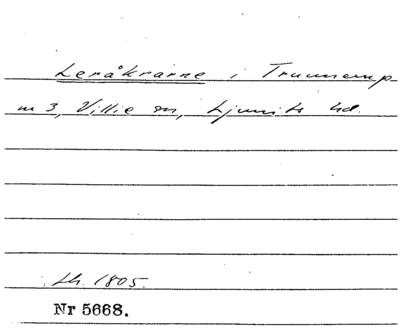 Leråkrarne i Trunnerup
n 3, Villie sn, Ljunits hd.
Lh. 1805.
Nr 5668.